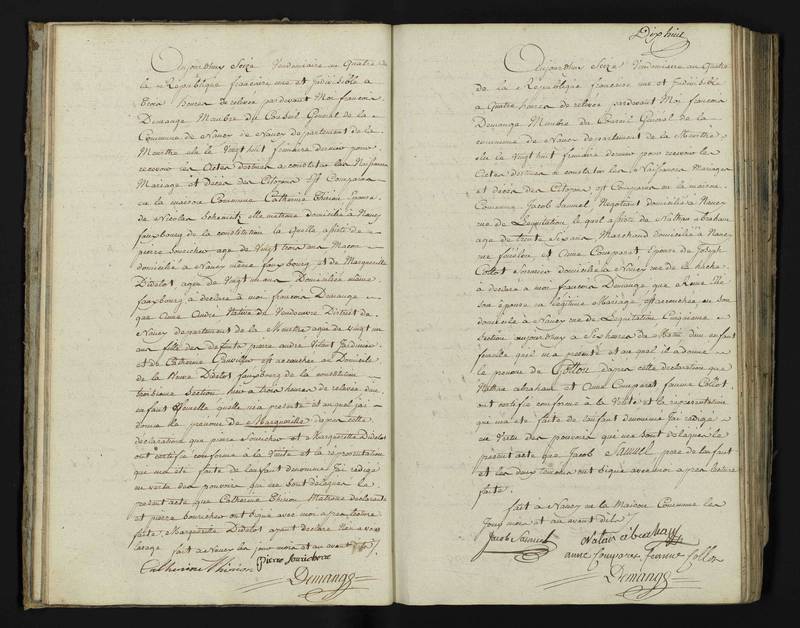 Aujourdhuy Seize Vendemiaire an Quatre de
la République françoise une et Indivisible a
trois heures de relevee pardevant Moi francois
Demange Membre du Conseil General de la
Commune de Nancy departement de la
Meurthe elu le Vingt huit frimaire dernier pour
recevoir les Actes destinés a constater les Naissances
Mariage et Deces des Citoyens Est Comparue
en la maison Commune Catherine Thirion Epouse
de Nicolas matrone domiciliée à Nancy
fauxbourg de la constitution la quelle assistée de
pierre age de Vingt trois ans Macon
domicilié a Nancy même fauxbourg et de Marguerite
Didelot agée de Vingt ans Domiciliée même
fauxbourg a déclaré a moi francois Demange
que Anne André Native de Vandoeuvre District de
Nancy departement de la Meurthe agée de vingt un
ans fille des defunts pierre andré Vivant Jardinier
et de Catherine est accouchée au Domicile
de la Didelot fauxbourg de la constitution
troisieme Section hier a trois heures de relevée d'un
enfant femelle quelle m'a présenté et auquel jai
donné le prenom de Marguerite dapres cette
declaration que pierre et Marguerite Didelot
ont certifié conforme à la Verité et la representation
qui ma eté faite de lenfant denommé Jai redigé
en vertu des pouvoirs qui me sont délégués le
present acte que Catherine Thirion Matrone declarante
et pierre ont signé avec moi apres lecture
faite, Marguerite Didelot ayant declaré
fait a Nancy les jour mois et an avant dits
Catherine Thirion pierre
Demange
Dixhuit
Aujourdhuy Seize Vendemiaire an Quatre
de la République françoise une et Indivisible
a Quatre heures de relevée pardevant Moi francois
Demange Membre du Conseil General de la
commune de Nancy departement de la Meurthe
elu le Vingt huit frimaire dernier pour recevoir les
Actes destinés a constater les Naissances Mariages
et décés des Citoyens est Comparu en la maison
Commune Jacob Samuel Negotiant domicilié a Nancy
rue de Lequitation le quel assisté de Nathan abraham
age de trente Six ans Marchand domicilié a Nancy
rue et Anne Epouse de Joseph
Collot domicilié a Nancy rue de la hache
a déclaré a moi francois Demange que
son épouse en légitime Mariage est accouchée en son
domicile à Nancy rue de Lequitation Cinquieme
Section aujourdhuy a Six heures du Matin d'un enfant
femelle quil m'a présenté et au quel il a donné
le prenom de dapres cette déclaration que
Nathan abraham et Anne femme Collot
ont certifié conforme à la Verité et la representation
qui ma eté faite de lenfant denommé Jai redigé
en Vertu des pouvoirs qui me sont délégués le
présent acte que Jacob Samuel pere de lenfant
et les deux temoins ont signé avec moi apres lecture
faite.
fait a Nancy en la Maison Commune les
Jour mois et an avant dits
Jacob Samuel
anne femme Collot
Demange